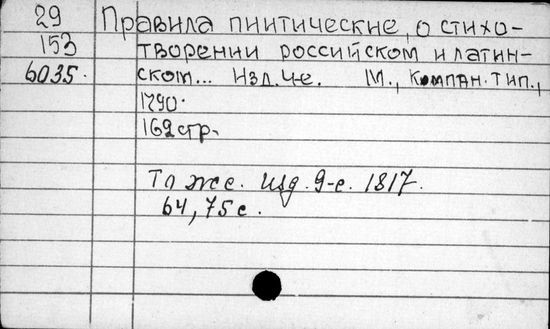 29
153
6035.
Правила пиитические, о стихо-
творении российском и латин-
ском... Изд. 4е. М., Компан. тип.,
1790.
162 стр.
То же. Изд. 9-е. 1817.
64, 75 с.